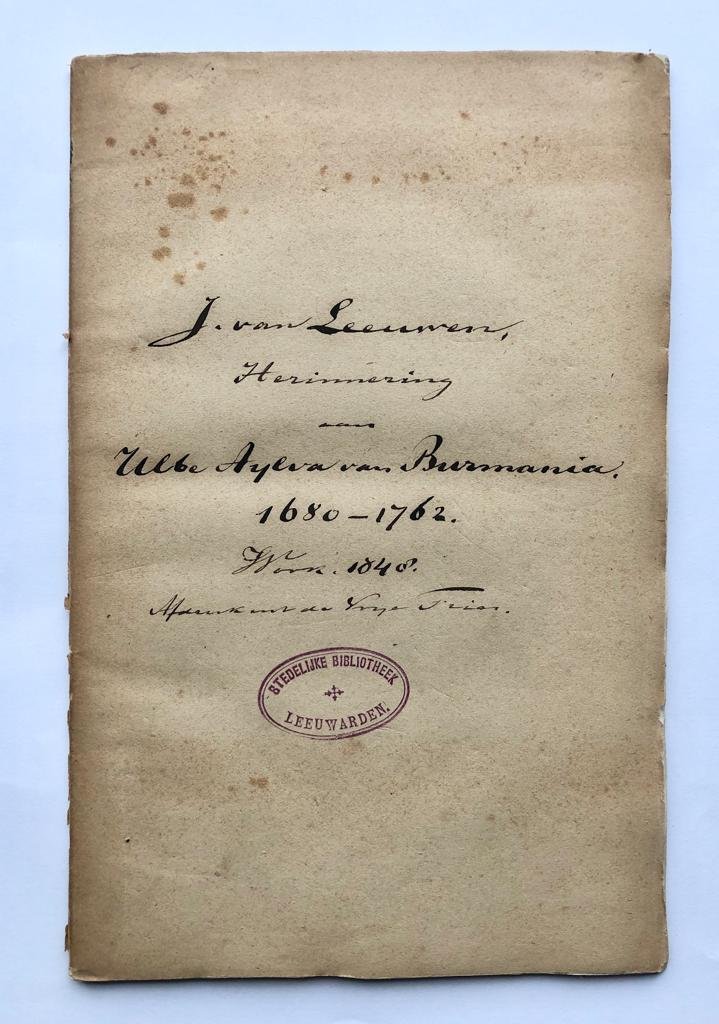 J. van Leeuwen,
Herinnering
aan
Ulbe Aylva van Burmania.
1680–1762.
Work. 1848.
Afdruk uit de Vrye Fries.
STEDELIJKE BIBLIOTHEEK
LEEUWARDEN.